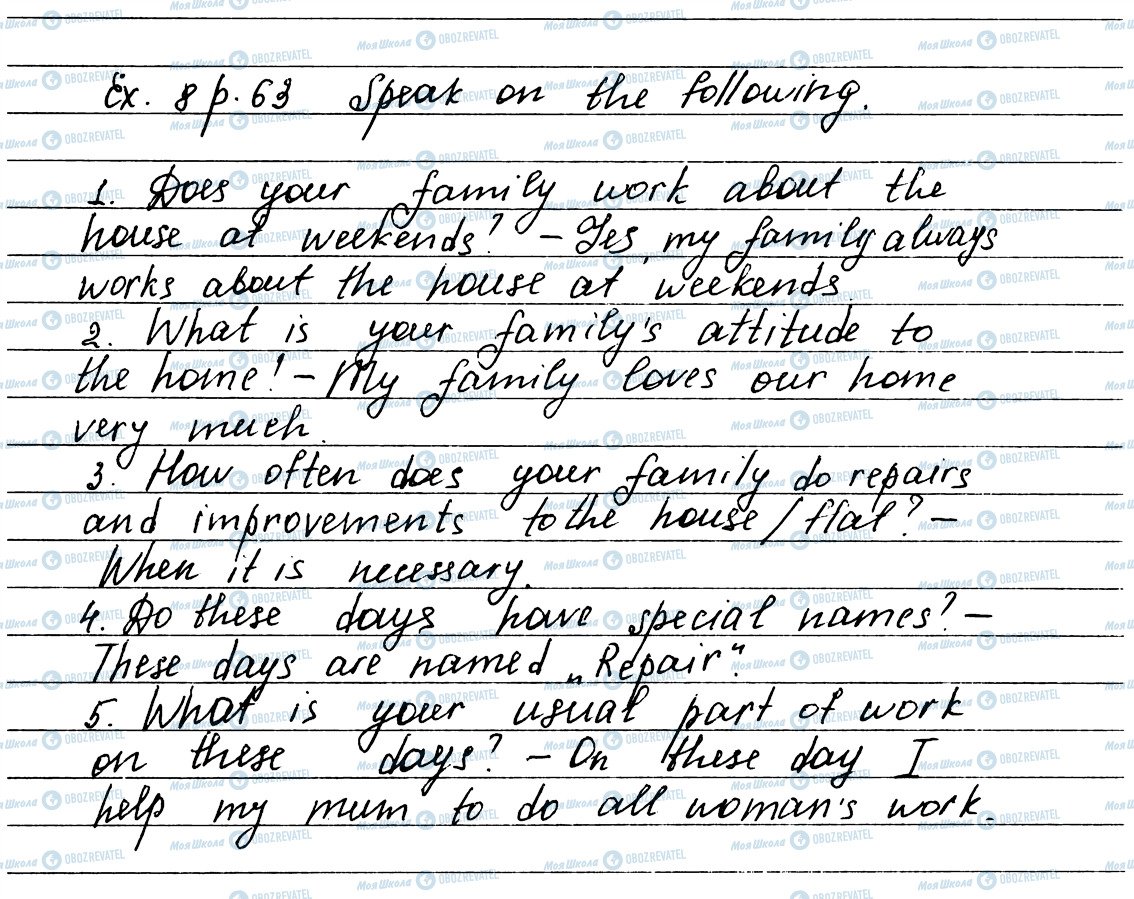 Ex. 8 p. 63 Speak on the following.
1. Does your family work about the
house at weekends? – Yes, my family always
works about the house at weekends.
2. What is your family's attitude to
the home? – My family loves our home
very much.
3. How often does your family do repairs
and improvements to the house/flat? –
When it is necessary.
4. Do these days have special names? –
These days are named „Repair“.
5. What is your usual part of work
on these days? – On these day I
help my mum to do all woman's work.
Моя Школа OBOZREVATEL